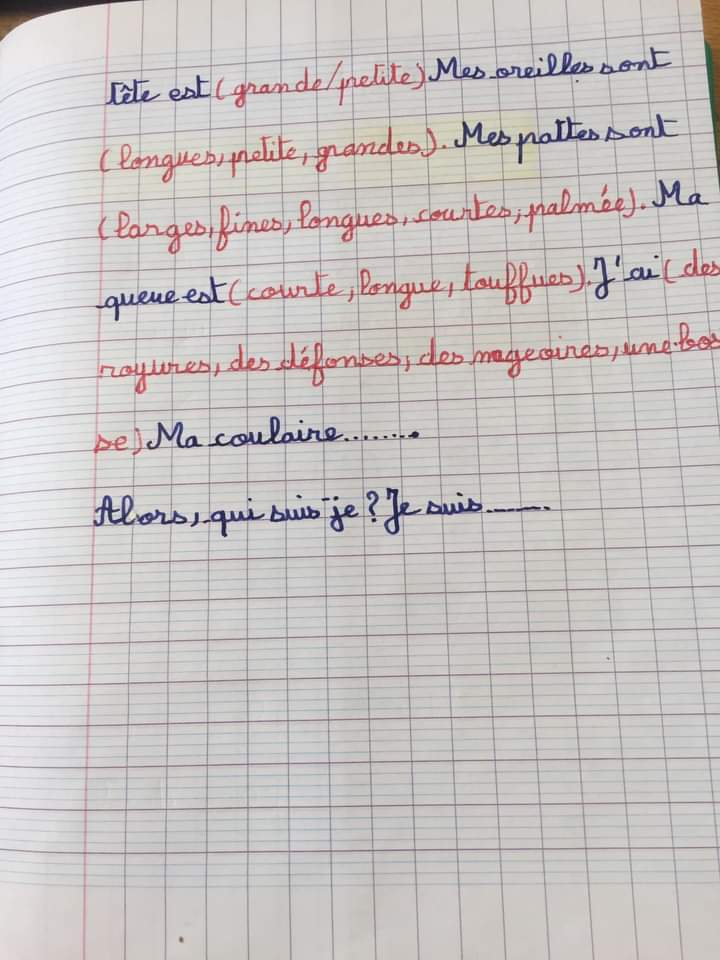 tête est (grande/petite) Mes oreilles sont
(longues, petite, grandes). Mes pattes sont
(larges, fines, longues, courtes, palmée). Ma
queue est (courte, longue, touffues). J'ai (des
rayures, des défonses, des nageoires, une bos
se) Ma coulaire........
Alors, qui suis-je ? Je suis........